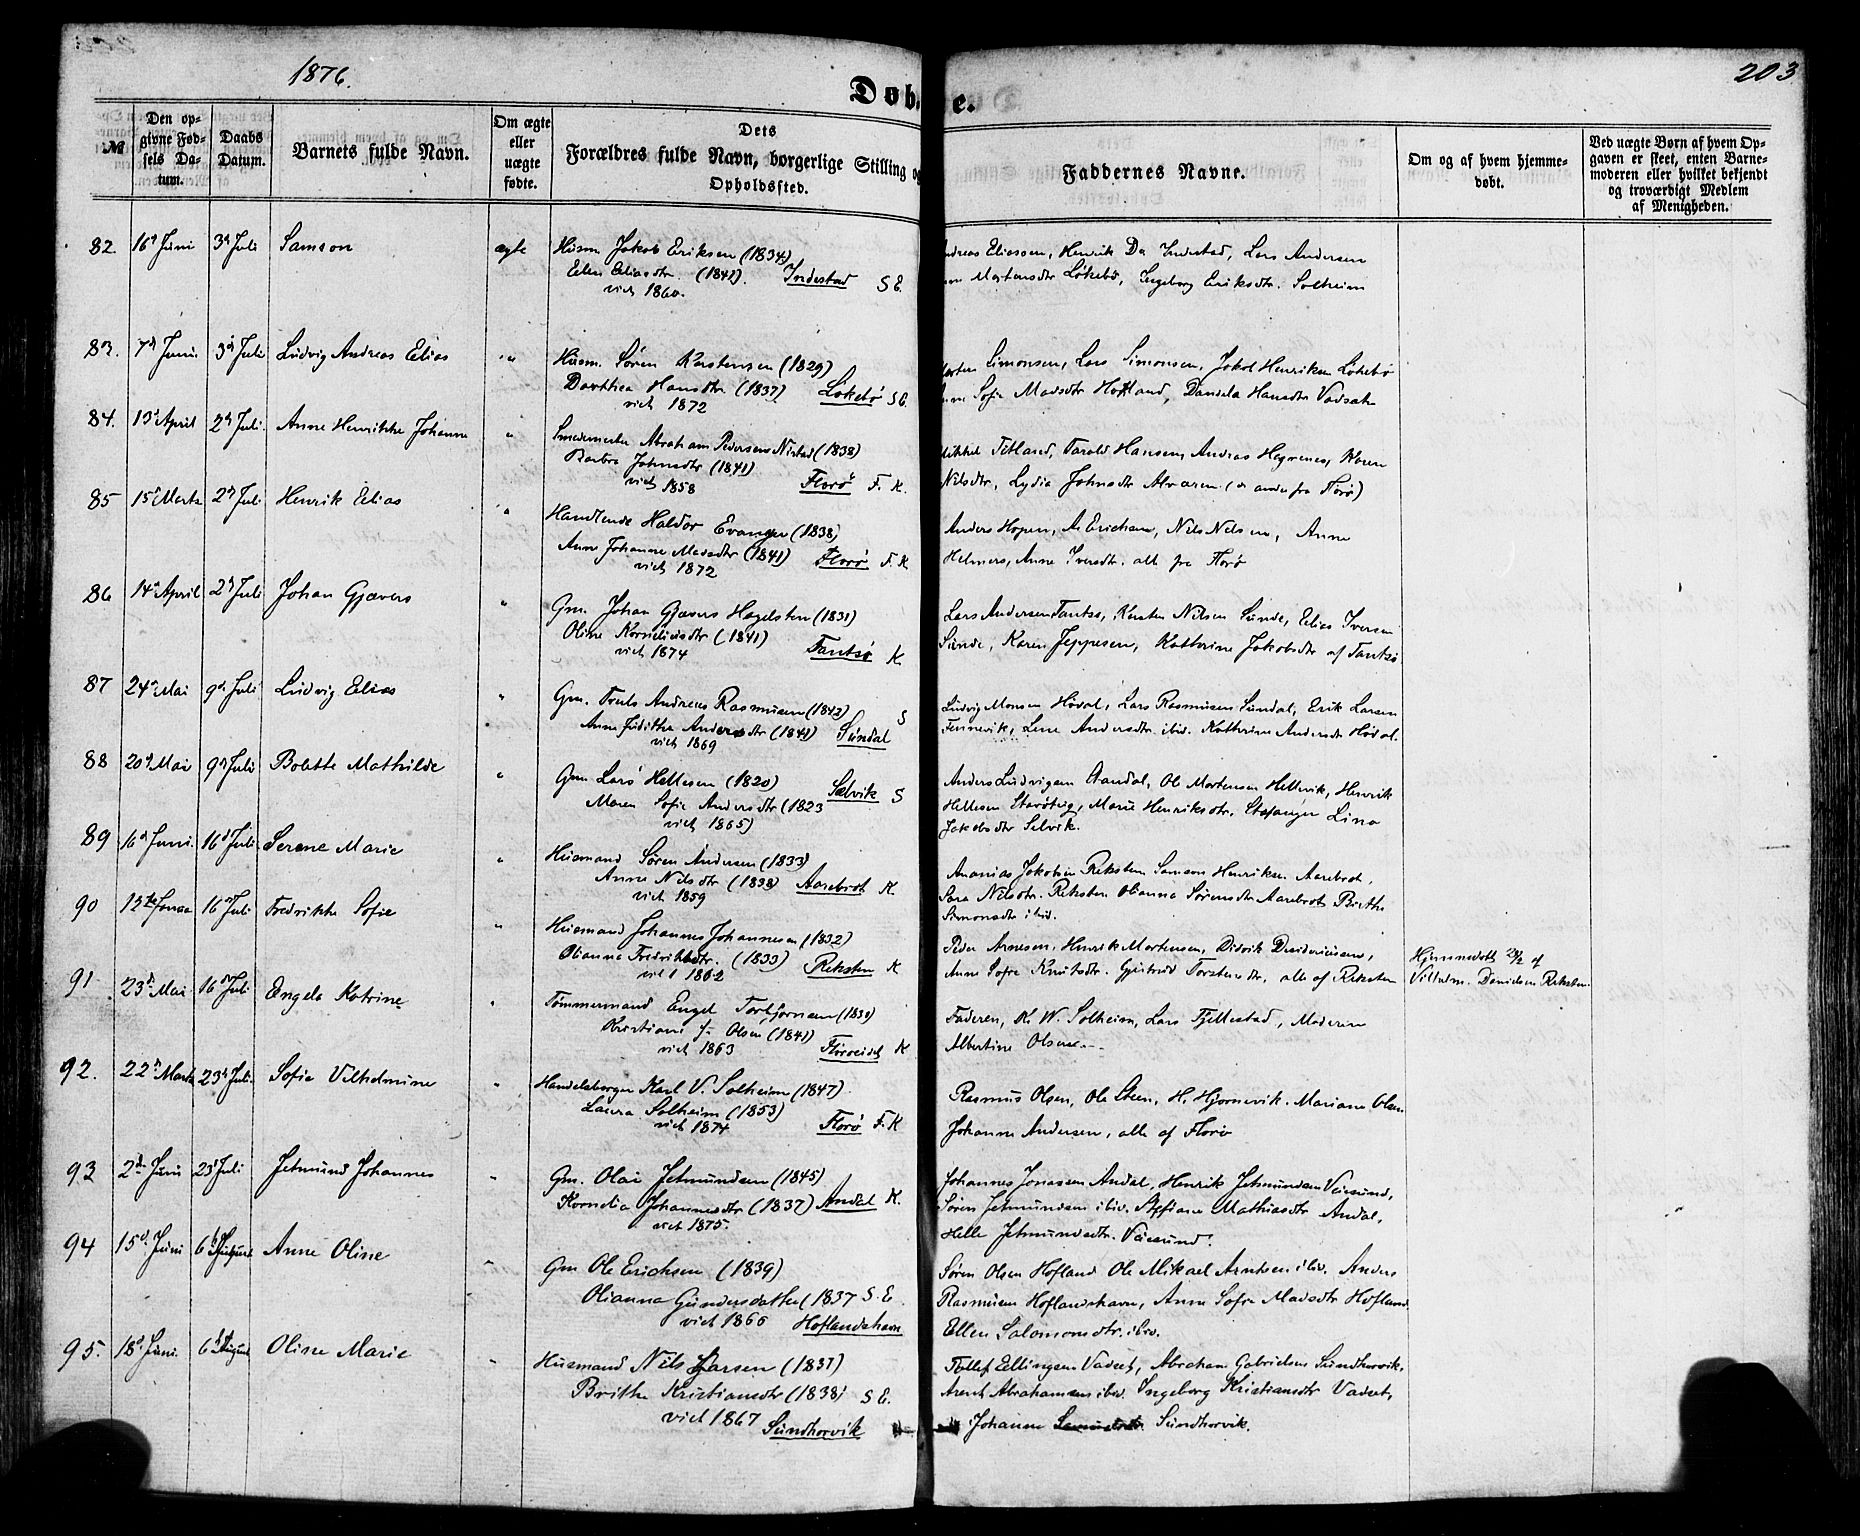 1876.
203
Døbte.
№
Den opgivne Fødsels Datum.
Daabs Datum.
Barnets fulde Navn.
Om ægte eller uægte fødte.
Dets Forældres fulde Navn, borgerlige Stilling og Opholdssted.
Faddernes Navne.
Om og af hvem hjemmedøbt.
Ved uægte Børn af hvem Opgaven er skeet, enten Barnemoderen eller hvilket bekjendt og troværdigt Medlem af Menigheden.
82 16d Juni 3d Juli Samson ægte Husm Jakob Eriksen (1834)
Elen Eliasdtr. (1842). Indestad S E.
viet 1860.
Andreas Eliassen, Henrik Do Indestad, Lars Andersen
Martensdtr Løkebø, Ingeborg Eriksdtr. Solheim
83. 7d Juni 3d Juli Ludvig Andreas Elias " Husm. Søren Karstensen (1829)
Dorthea Hansdtr (1837) Løkebø S E.
viet 1872
Simonsen, Lars Simonsen, Jakob Henriksen Løkebø
Sofie Madsdtr Hofland, Daniela Hansdtr Vadset
84. 13d April 2d Juli. Anne Henrikke Johanne " Smedemester Abraham Pedersen Nistad (1838)
Barbra Johnsdtr (1841)
viet 1858 Florø F. K.
Mikkel Titland, Tarald Hansen, Andreas Hegrenes, Karen
Nilsdtr, Lydia Johnsdtr Alværen (de andre fra Florø)
85 15d Marts 2d Juli Henrik Elias " Handlende Haldor Evanger (1838)
Anne Johanne Madsdtr (1841) Florø F. K
viet 1872
Anders Hopen, A. Erichsen, Nils Nilsen, Anne
Helmers, Anne Iversdtr. alle fra Florø
86 14d April 2d Juli Johan Gjævers " Gm. Johan Gjævers Hegelsten (1831)
Oline Korneliusdtr (1841)
viet 1874 Tantsø K.
Lars Andersen Tantsø, Karsten Nilsen Sunde, Elias Iversen
Sunde, Karen Jeppesen, Katherine Jakobsdtr af Tantsø
87 24d Mai 9d Juli Ludvig Elias " Gm. Truls Andreas Rasmusen (1842) S
Anne Juditha Andersdtr (1841) Sundal
viet 1869
Ludvig Monsen Høidal, Lars Rasmusen Sundal, Erik Larsen
Tennevik, Lene Andersdtr. ibid. Katharine Andersdtr Høidal.
88 20d Mai 9d Juli Bolette Mathilde " Gm Lars Hellesen (1820) Selvik S
Maren Sofie Andersdtr (1823
viet 1865)
Anders Ludvigsen Standal, Ole Mortensen Hellevik, Henrik
Hellesen Starøtrig, Marie Henriksdtr, Stavanger Lina
Jakobsdtr Selvik.
89 16d Juni. 16d Juli Serene Marie " Husmand Søren Andersen (1833)
Anne Nilsdtr (1838) Aarebrot K
viet 1859
Ananias Jakobsen Reksten Samson Henriksen Aarebrot,
Sara Nilsdtr. Reksten Olianna Sørensdtr Aarebrot Birthe
Simonsdtr ibid.
90 12te Janua 16d Juli Fredrikke Sofie " Husmand Johannes Johannesen (1832)
Olianna Fredrikkdtr. (1833) Reksten K
viet 1862
Peder Arnesen, Henrik Mortensen, Didrik Davidsen,
Anne Sofie Knutsdtr. Gjertrud Torstensdtr, alle af Reksten
Hjemmedøbt af
Vilhelm. Danielsen Reksten.
91 23d Mai 16d Juli Engela Katrine " Tømmermand Engel Torbjørnsen (1830)
Kristiane f. Olsen (1841)
viet 1863 Florøeidet K
Faderen, K. W. Solheim, Lars Fjellestad, Moderen
Albertine Olsen.
92. 22d Marts 23d Juli. Sofie Vilhelmine " Handelsborger Karl V. Solheim (1847)
Laura Solheim (1853)
viet 1874 Florø F. K
Rasmus Olsen, Ole Steen, H. Hjornevik. Mariane Olsen
Johanne Andersen, alle af Florø
93 2d Juni 23d Juli Jetmund Johannes " Gm. Olai Jetmundsen (1845)
Kornelia Johannesdtr (1837) Andal K.
viet 1875.
Johannes Jonassen Andal, Henrik Jetmundsen Veisund,
Søren Jetmundsen ibid. Steffiane Mathiasdtr Andal,
Helle Jetmundsdtr. Veisund.
94 15d. Juni 6d August Anne Oline " Gm Ole Erichsen (1839)
Olianna Gundersdatter (1837 S. E.
viet 1866 Hoflandshavn
Søren Olsen Hofland Ole Mikael Arntsen ibid. Anders
Rasmusen Hoflandshavn, Anne Sofie Madsdtr Hofland
Ellen Salomonsdtr. ibid.
95. 18d. Juni. 6d August Oline Marie " Husmand Nils Larsen (1831)
Brithe Kristiansdtr (1838) S E.
viet 1867 Sundhorvik
Ellingsen Vadset, Abraham Gabrielsen Sundhorvik,
Arent Abrahamsen ibid. Ingeborg Kristiansdtr Vadset,
Johanne Sundhorvik.